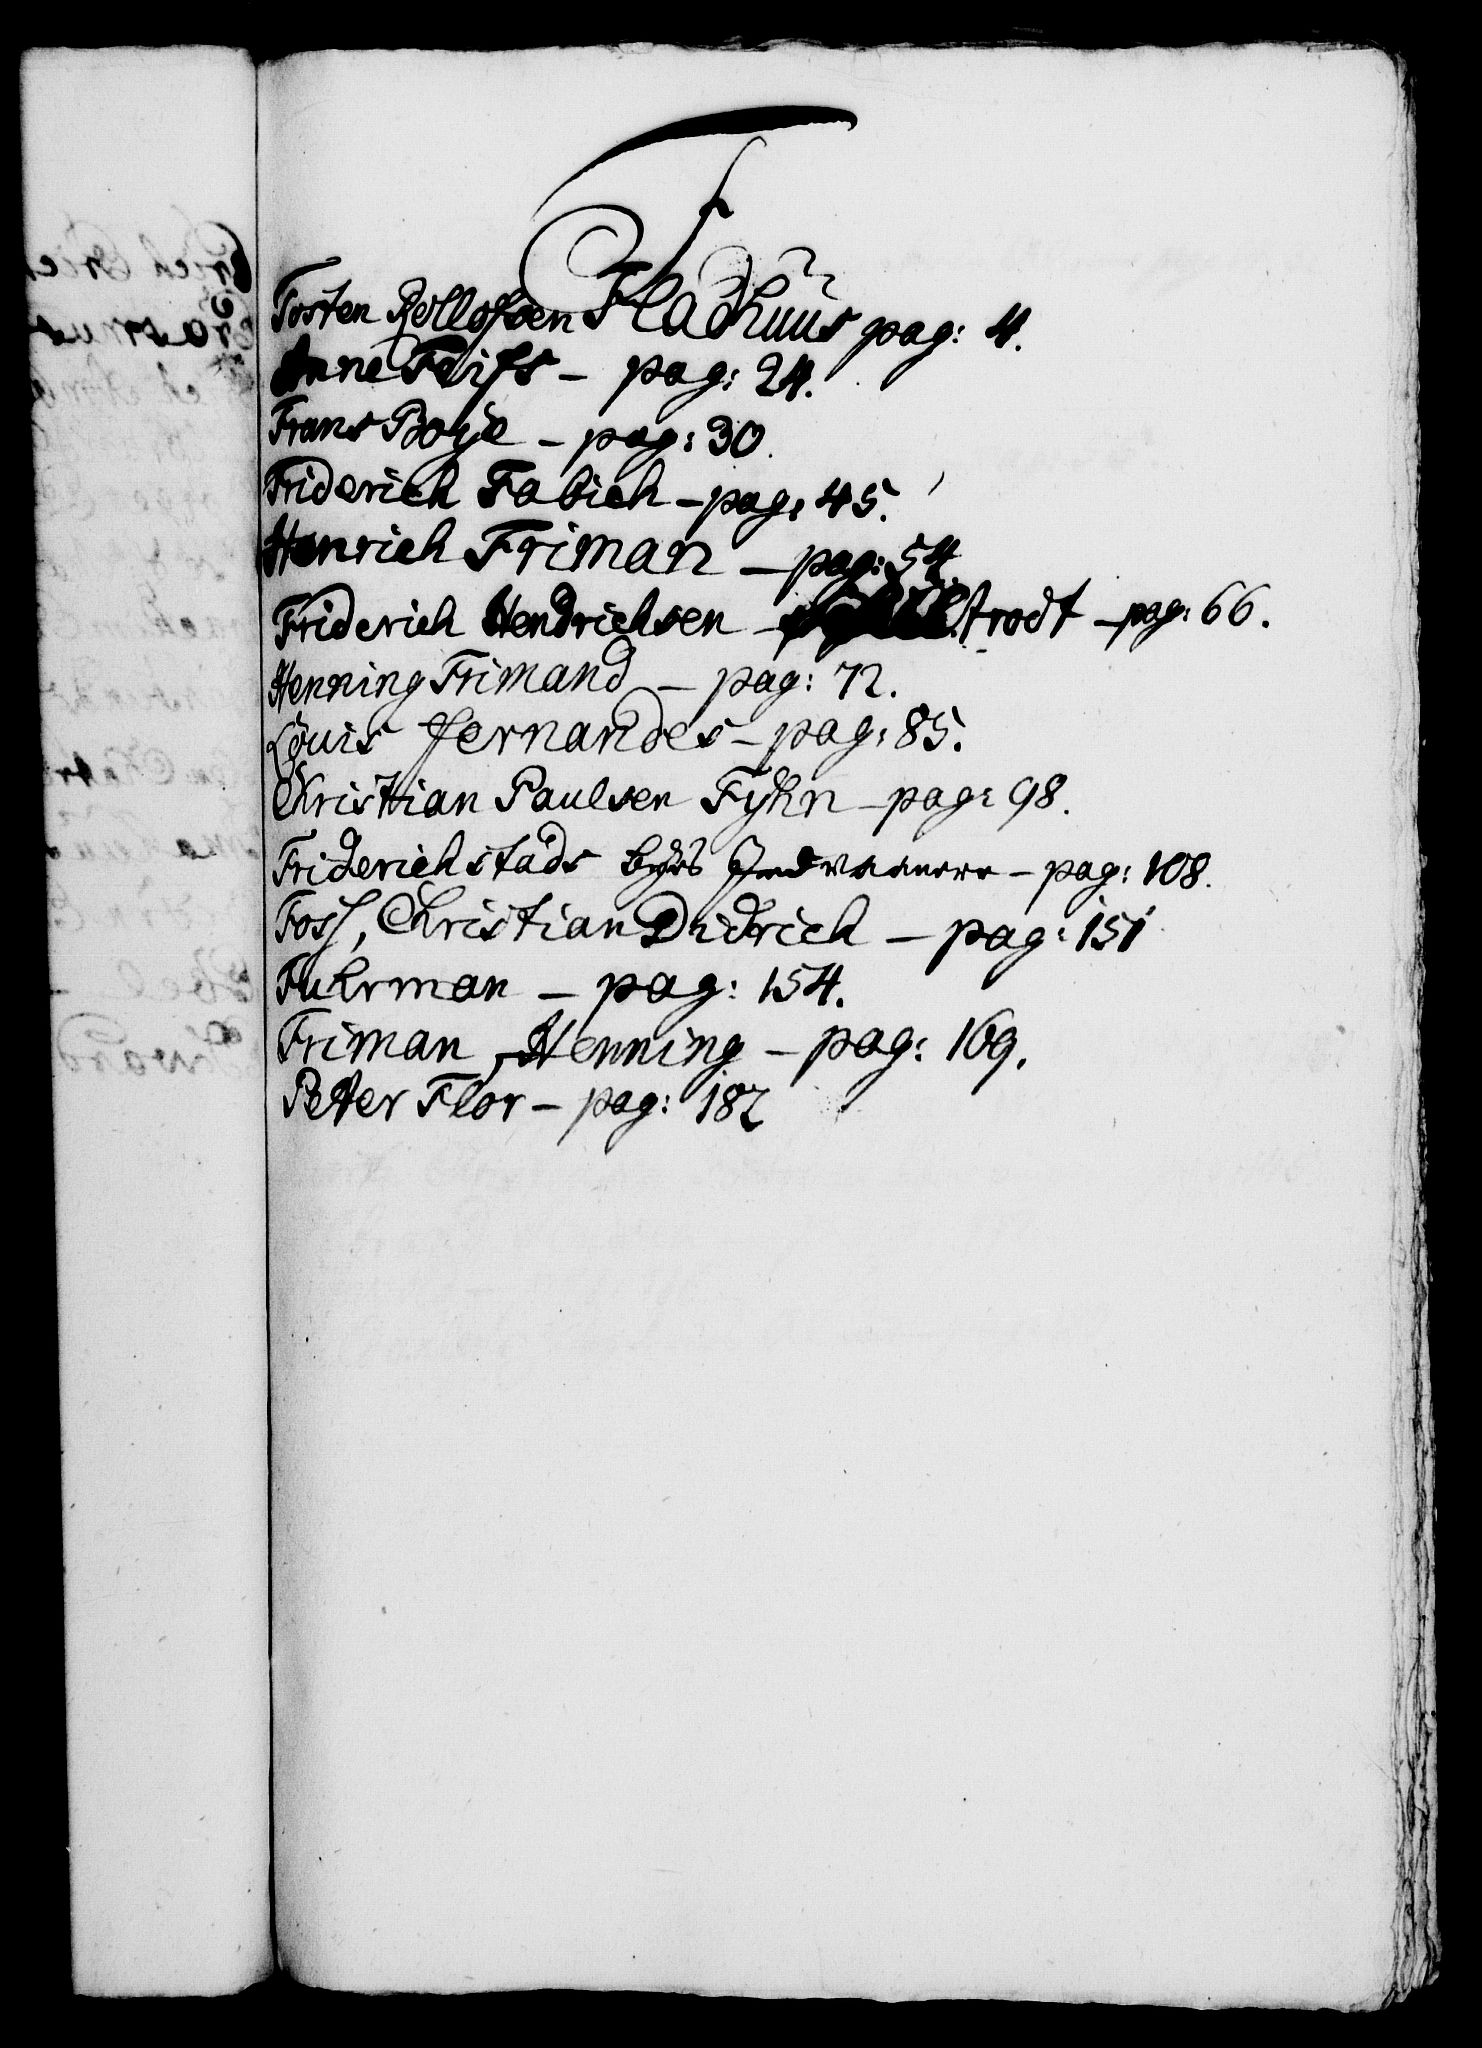 F
Tosten Rollofsen Fladhuus pag: 4.
Anne Feifs – pag: 24.
Frans Boye – pag: 30.
Friderich Fabich – pag: 45.
Henrich Friman – pag: 54
Friderich Hendrichsen – strodt – pag: 66.
Henning Frimand – pag: 72.
Louis Fernandes – pag: 85.
Christian Paulsen Fyhn – pag: 98.
Friderichstads byes Indvaanere – pag: 108.
Foss, Christian Didrich – pag: 151
Fuhrman – pag: 154.
Friman, Henning – pag: 169.
Peter Flor – pag: 182